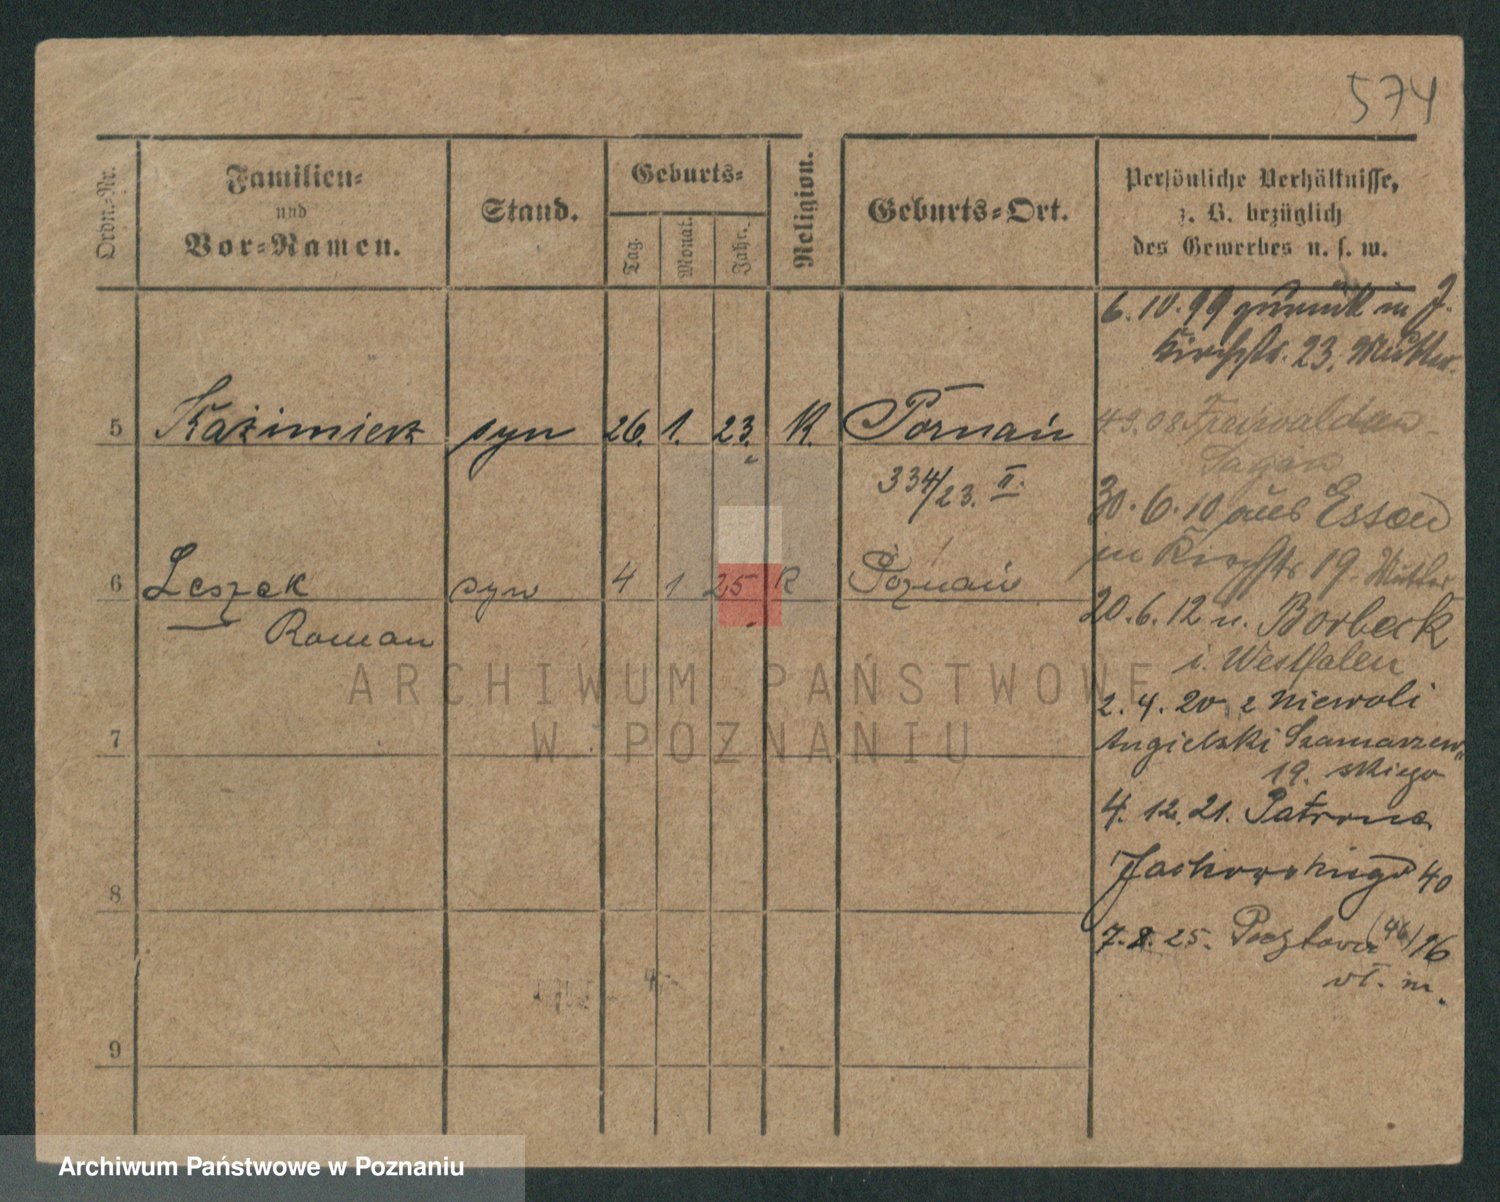 574
Ordn.-Nr.
Familien-
und
Vor-Namen.
Stand.
Geburts-
Tag.
Monat.
Jahr.
Religion.
Geburts-Ort.
Persönliche Verhältnisse,
z. B. bezüglich
des Gewerbes u. s. w.
6. 10. 99 zurück in J.
Kirchstr. 23. Mutter.
5 Kazimierz syn 26. 1. 23. K. Poznań
Freiwaldau
Sagan
334/23. II.
30. 6. 10 aus Essen
in Kirchstr 19. Mutter
6 Leszek syn 4 1 25 K Poznań
Roman
20. 6. 12 n. Borbeck
i. Westfalen
2. 4. 20 z niewoli
Angielski Szamarzew
19. skiego
7
4. 12. 21. Patrona
Jackowskiego 40
8
7. 8. 25. Pocztowa (46)/16
wł. m.
9
ARCHIWUM PAŃSTWOWE
W POZNANIU
Archiwum Państwowe w Poznaniu